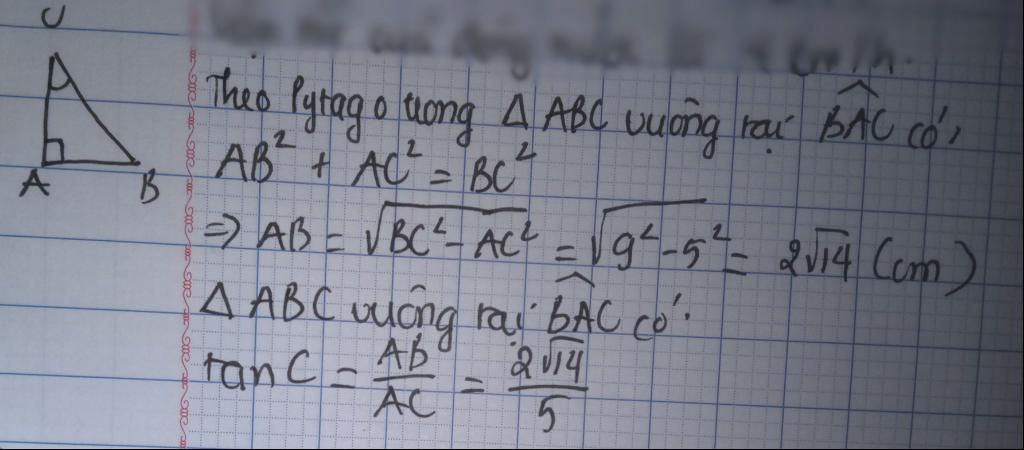 C
A B
Theo Pytago trong Δ ABC vuông tại \widehat{BAC} có,
AB² + AC² = BC²
⇒ AB = √(BC² - AC²) = √(9² - 5²) = 2√14 (cm)
Δ ABC vuông tại \widehat{BAC} có:
tan C = AB/AC = 2√14/5